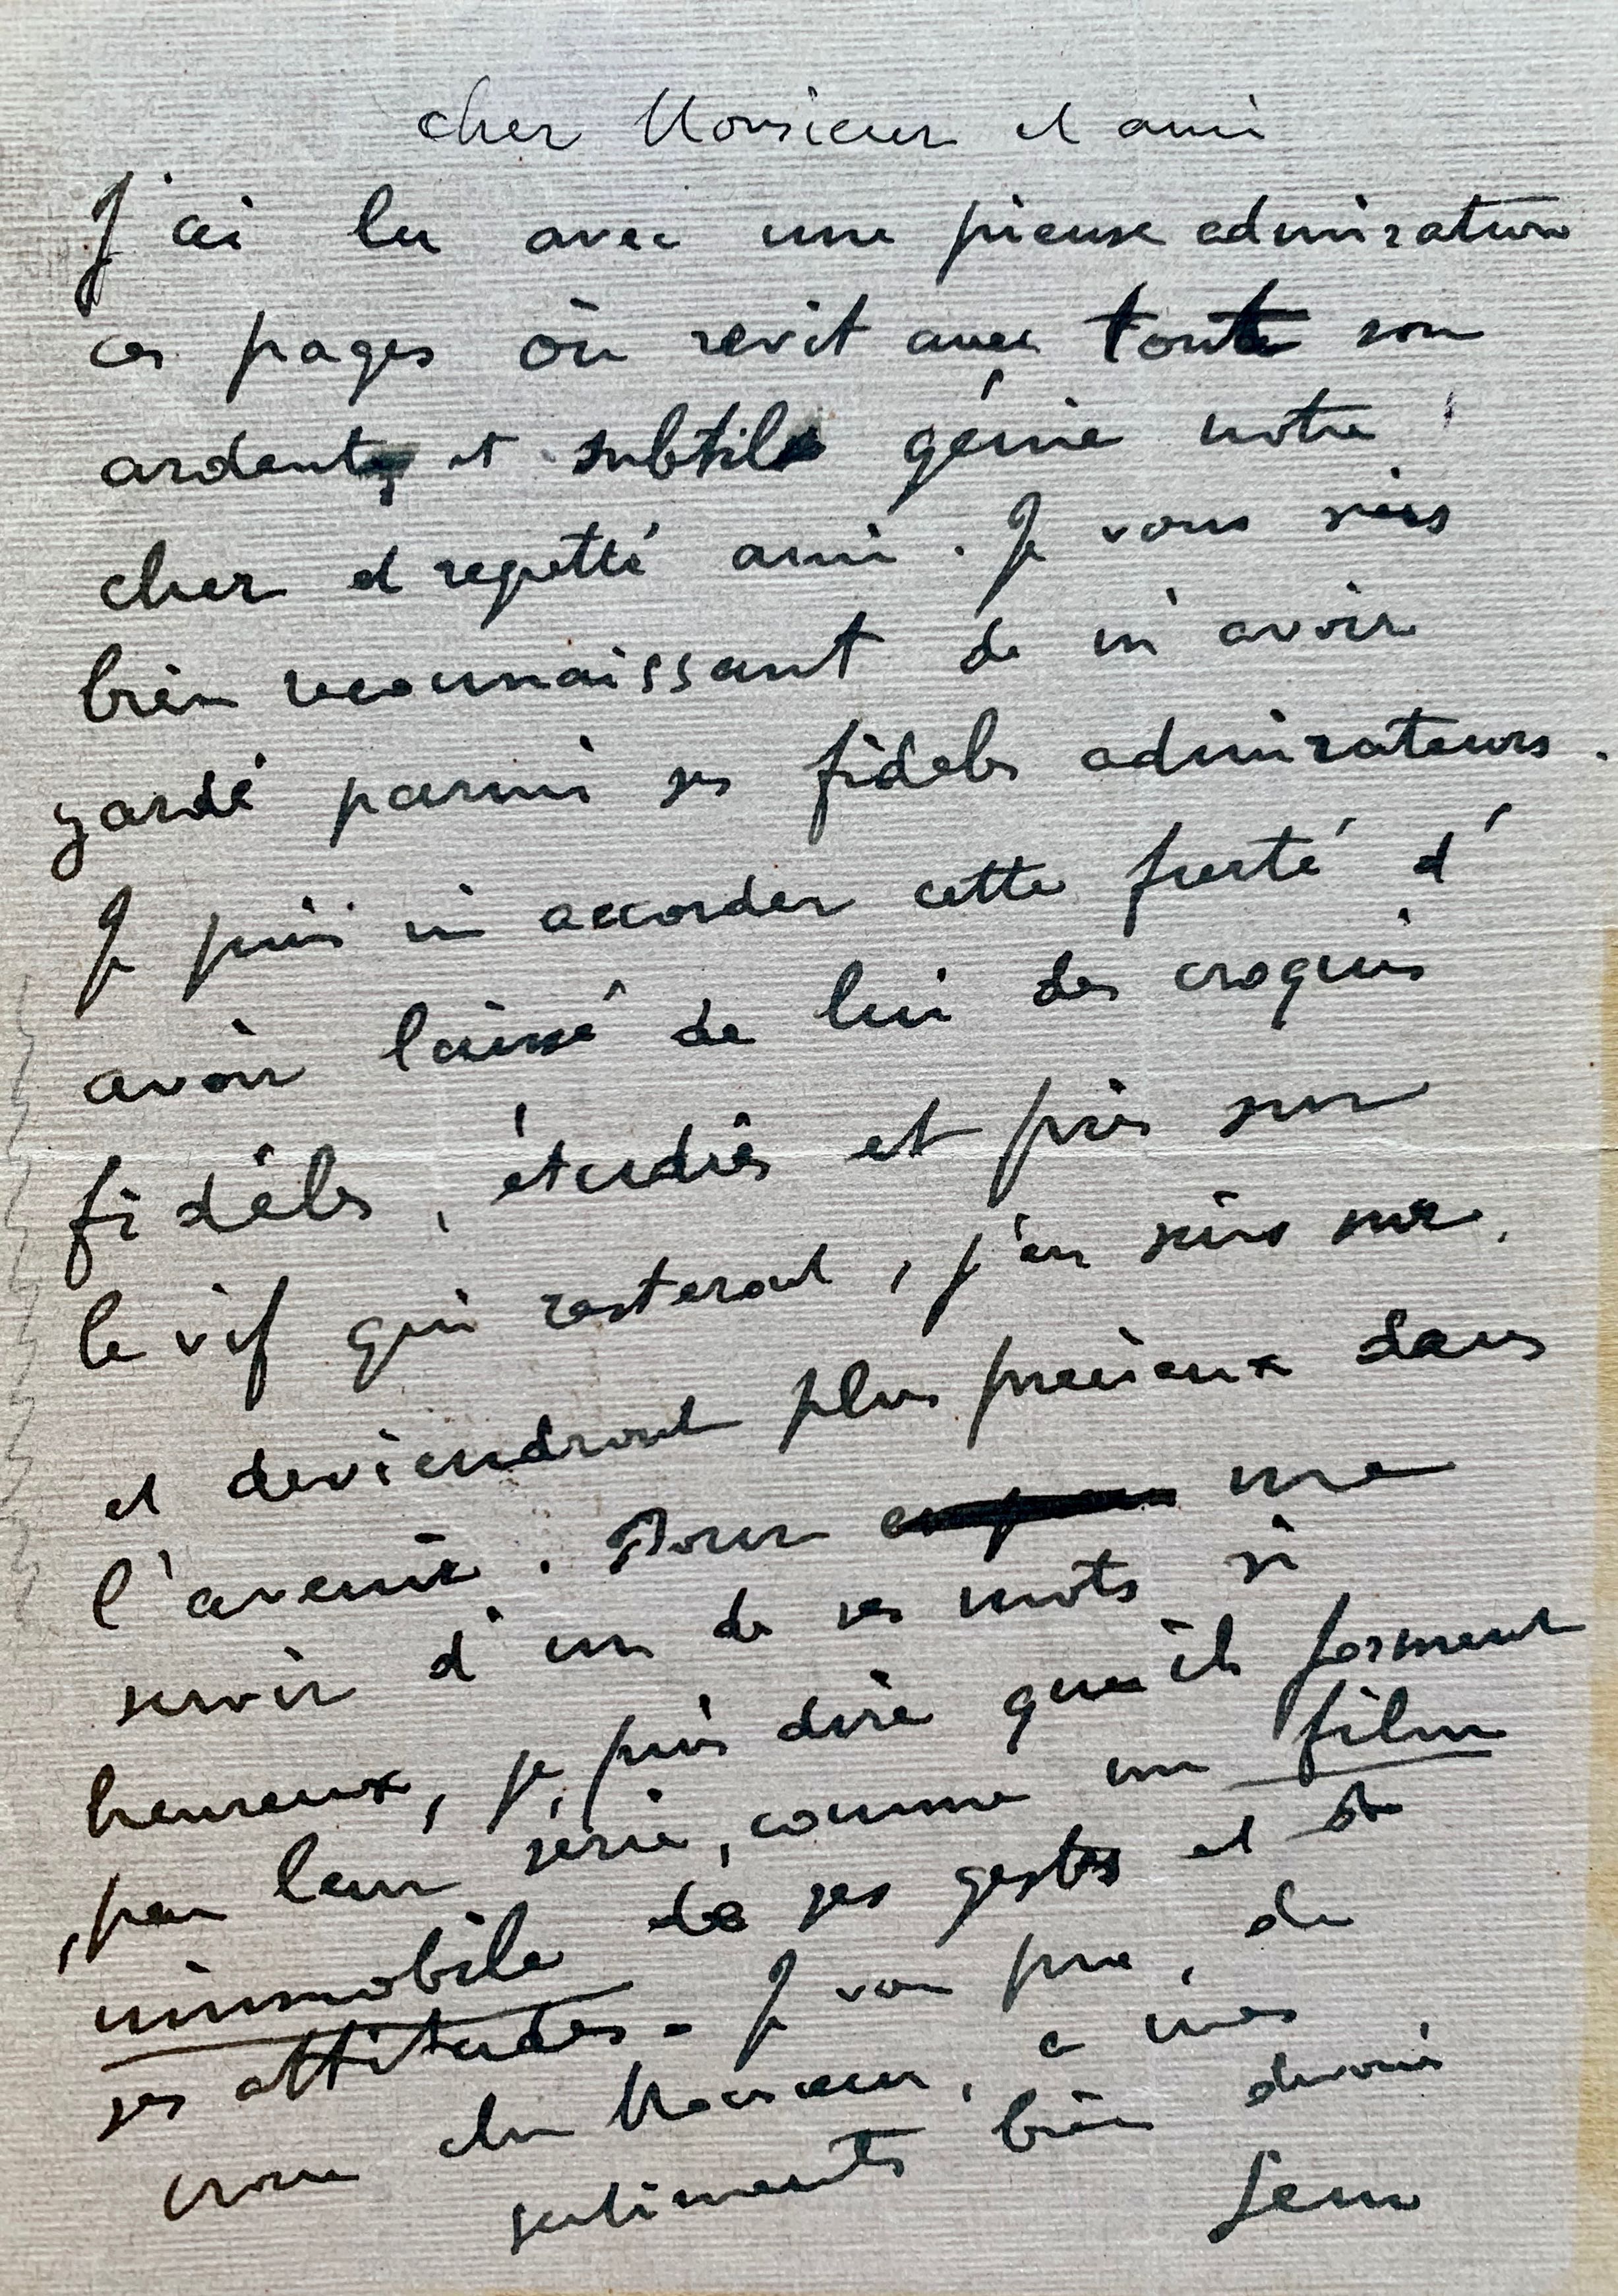 cher Monsieur et ami
J'ai lu avec une pieuse admiration
ces pages où revit avec tout son
ardent et subtil génie notre
cher et regretté ami. Je vous suis
bien reconnaissant de m'avoir
gardé parmi ses fidèles admirateurs.
Je puis m'accorder cette fierté d'
avoir laissé de lui des croquis
fidèles, étudiés et pris sur
le vif qui resteront, j'en suis sur,
et deviendront plus précieux dans
l'avenir. Pour me
servir d'un de ses mots si
heureux, je puis dire qu'ils forment
par leur série, comme un film
immobile de ses gestes et de
ses attitudes. Je vous prie, de
croire cher Monsieur, a mes
sentiments bien dévoués
Sem